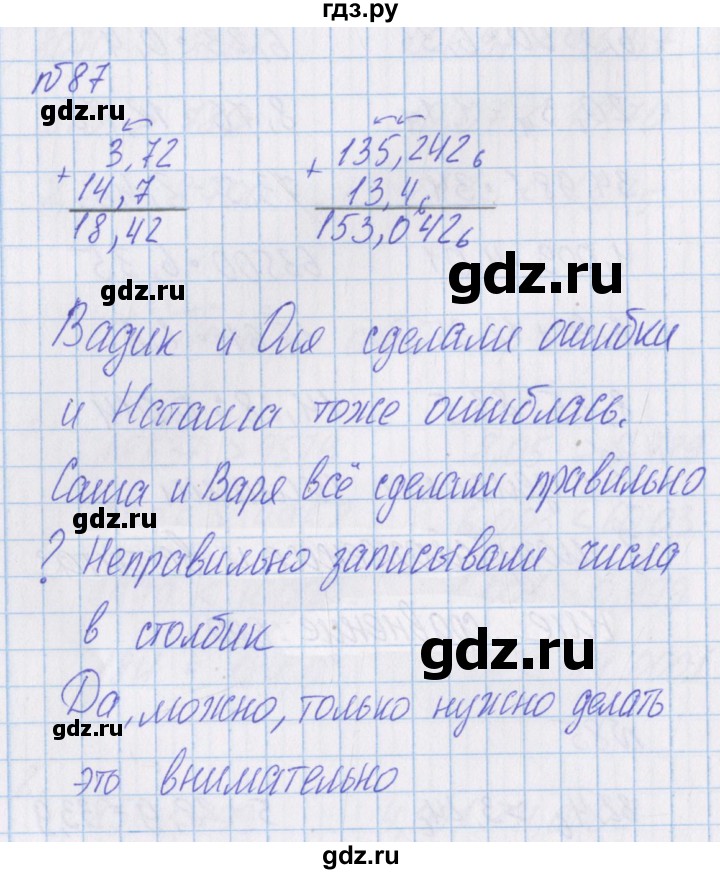 гдз.ру
№87
gdz.ru
3,72
+ 14,7
18,42
135,242₆
+ 13,4₆
153,042₆
gdz.ru
gdz.ru
Вадик и Оля сделали ошибки
и Наташа тоже ошиблась.
Саша и Варя всё сделали правильно
gdz.ru
? Неправильно записывали числа
в столбик
gdz.ru
Да, можно, только нужно делать
gdz.ru
это внимательно
gdz.ru